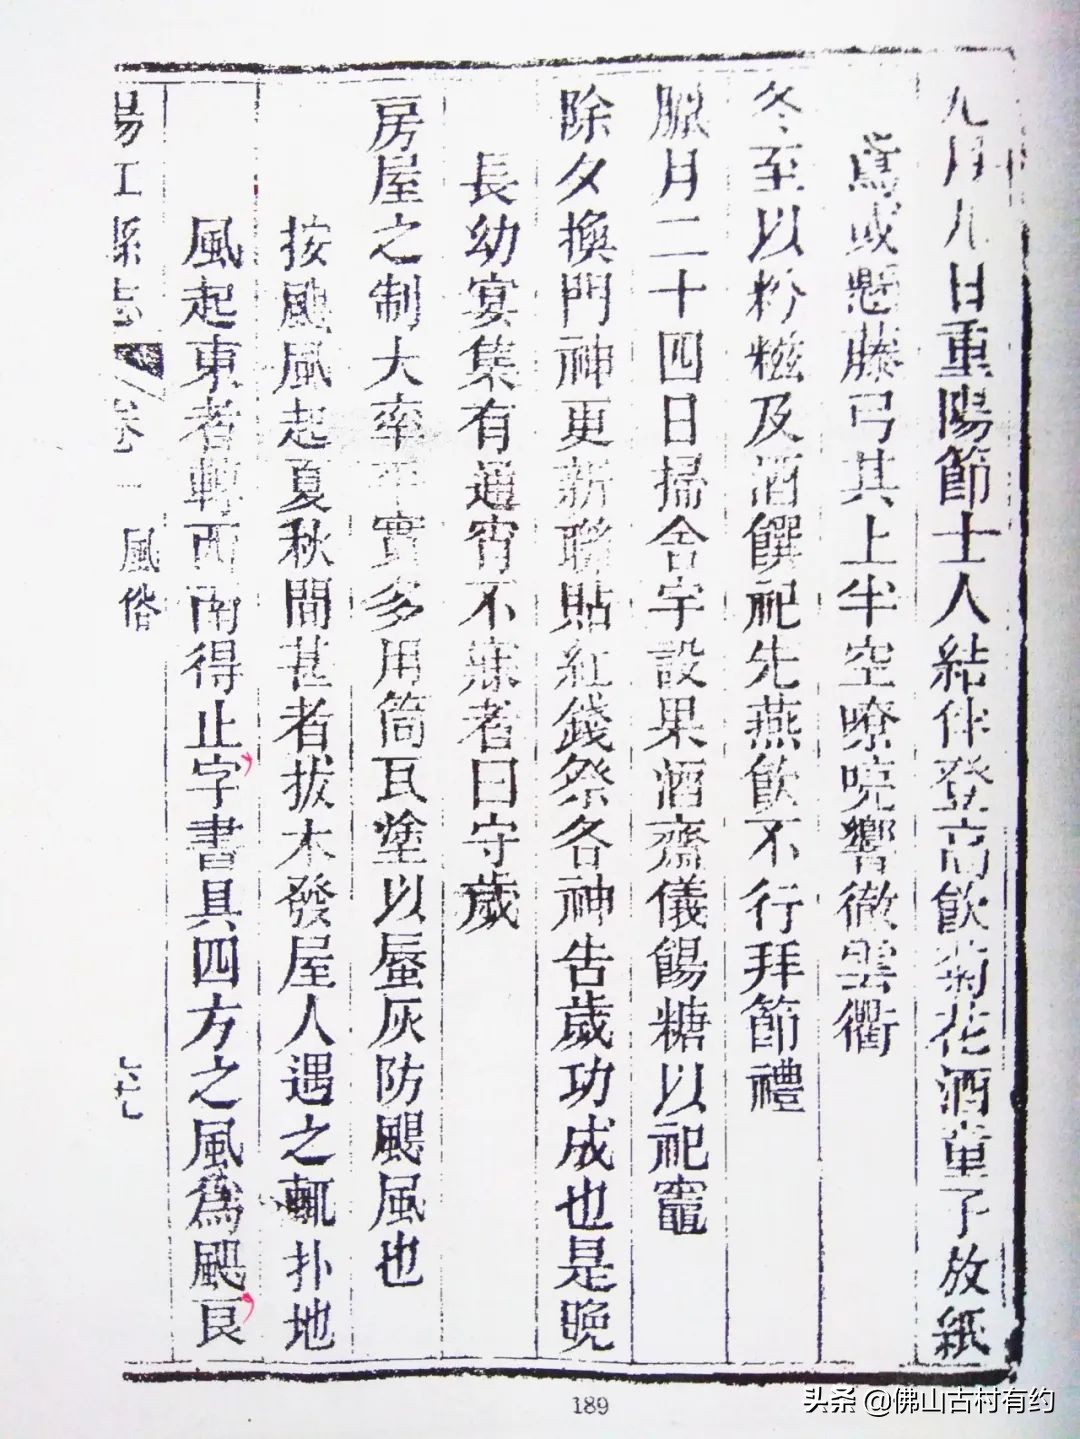 九月九日重陽節士人結伴登高飲菊花酒童子放紙
鳶或懸藤弓其上半空嘹喨響徹雲衢
冬至以粉糍及酒饌祀先燕飲不行拜節禮
臘月二十四日掃舍宇設果酒齋儀餳糖以祀竈
除夕換門神更新聯貼紅錢祭各神告歲功成也是晚
長幼宴集有通宵不寐者曰守歲
房屋之制大率平實多用筒瓦塗以蜃灰防颶風也
按颶風起夏秋間甚者拔木發屋人遇之輒扑地
風起東者轉西南得止字書具四方之風為颶良
陽江縣志 卷一 風俗
189
头条 @佛山古村有约